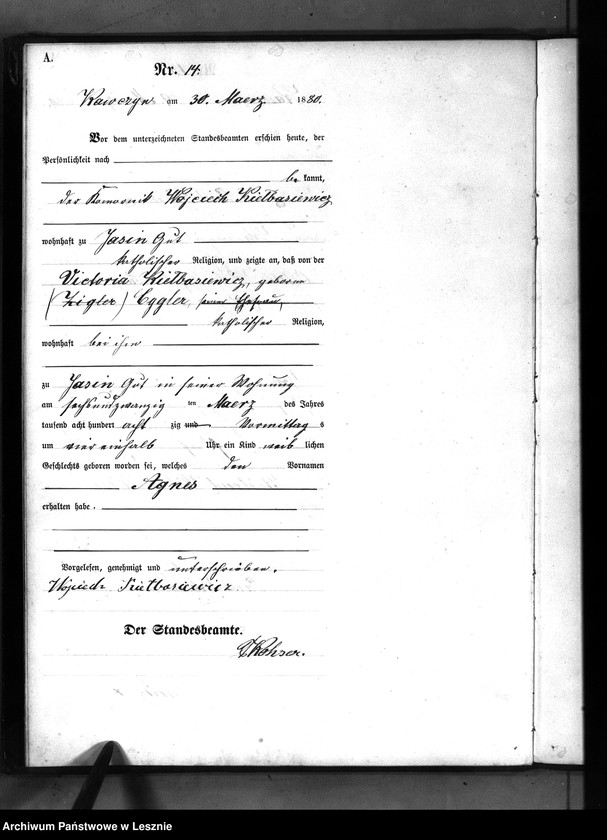 A.
Nr. 14.
Kawczyn am 30. Maerz 1880.
Vor dem unterzeichneten Standesbeamten erschien heute, der
Persönlichkeit nach
be kannt,
der Komornik Wojciech Kiełbasiewicz
wohnhaft zu Jasin Gut
katholischer Religion, und zeigte an, daß von der
Victoria Kiełbasiewicz, geborne
(Zigler) Eggler, seiner Ehefrau,
katholischer Religion,
wohnhaft bei ihm
zu Jasin Gut in seiner Wohnung
am sechsundzwanzig ten Maerz des Jahres
tausend acht hundert acht zig und Vormittag s
um vier einhalb Uhr ein Kind weib lichen
Geschlechts geboren worden sei, welches den Vornamen
Agnes
erhalten habe.
Vorgelesen, genehmigt und unterschrieben.
Wojciech Kiełbasiewicz
Der Standesbeamte.
Archiwum Państwowe w Lesznie